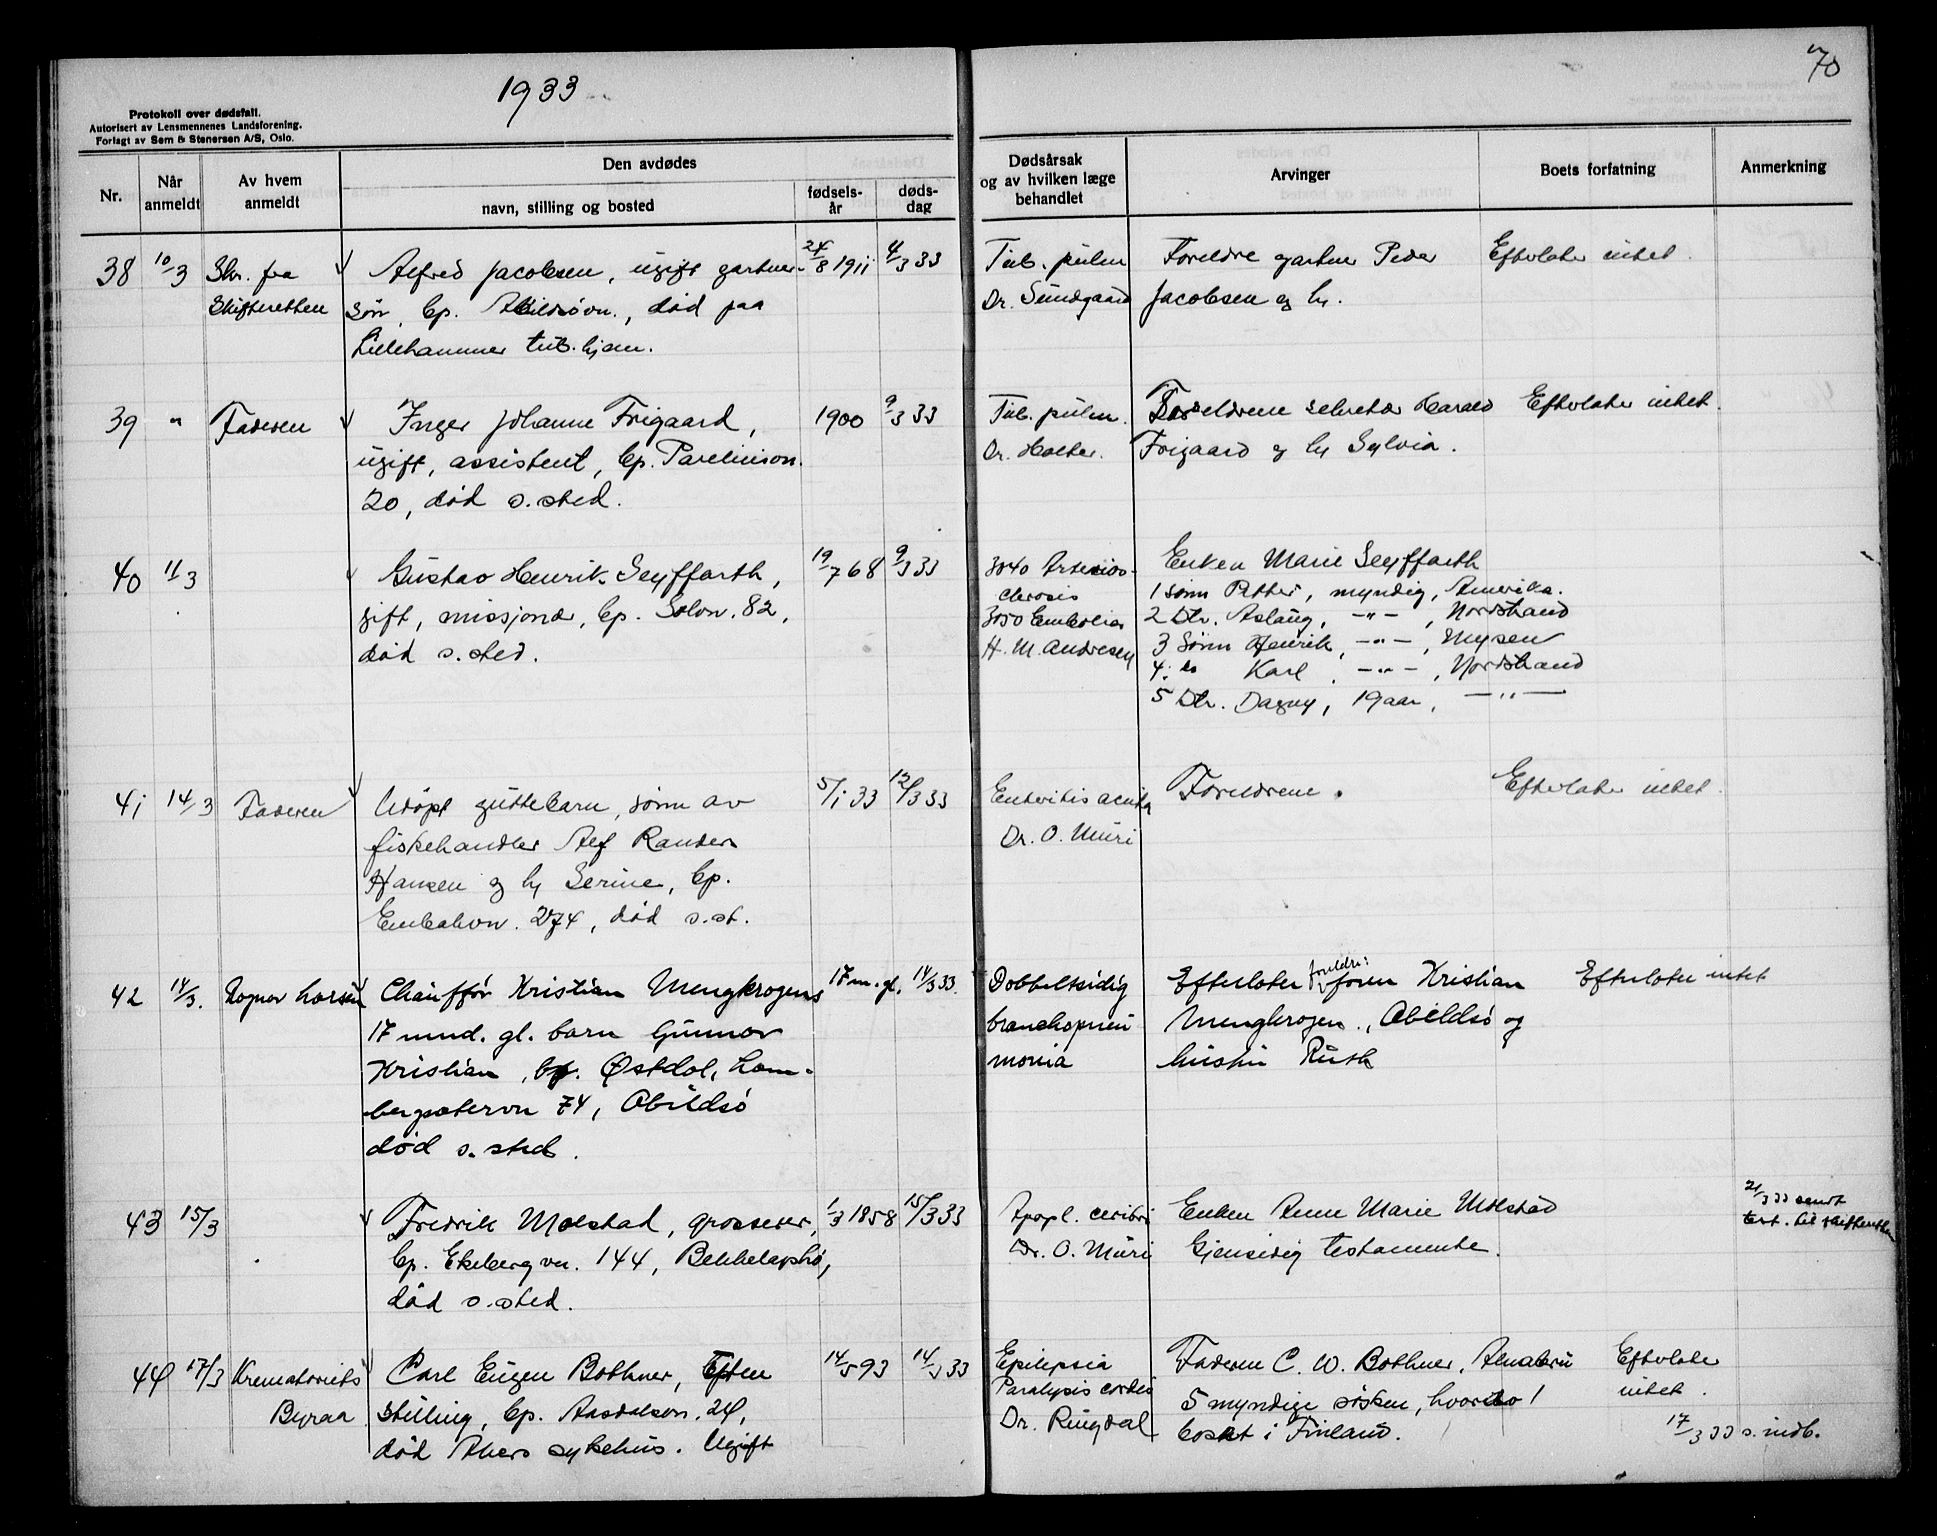 1933
70
Protokoll over dødsfall.
Autorisert av Lensmennenes Landsforening.
Forlagt av Sem & Stenersen A/S, Oslo.
Nr.
Når anmeldt
Av hvem anmeldt
Den avdødes
navn, stilling og bosted
fødsels-år
døds-dag
Dødsårsak og av hvilken læge behandlet
Arvinger
Boets forfatning
Anmerkning
38 10/3 Skr. fra Alfred Jacobsen, ugift gartner- 24/8 1911 4/3 33 Tub. pulm Foreldre gartner Peder Efterlater intet.
Skifteretten søn, bp. Abildsøvn., død paa Dr. Sundgaard Jacobsen og h.
Lillehammer tub.hjem.
39 " Faderen Inger Johanne Frigaard, 1900 9/3 33 Tub. pulm. Foreldrene sekretær Harald Efterlater intet.
ugift, assistent, bp. Parelinson. Dr. Holter. Frigaard og h. Sylvia.
20, død s.sted.
40 11/3 Gustav Henrik Seyffarth, 19/7 68 9/3 33 3040 Arterios- Enken Marie Seyffarth
clerosis 1 sønn Petter, myndig, Amerika.
gift, missjonær, bp. Solvn. 82, 3050 Embolia 2 Dtr. Aslaug, -"-, Nordstrand
død s.sted. H. M. Andresen 3 Sønn Henrik, -"-, Mysen
4. do Karl, -"-, Nordstrand
5 Dtr. Dagny, 19 aar, -"-
41 14/3 Faderen Udøpt guttebarn, sønn av 5/1 33 12/3 33 Enteritis acuta Foreldrene. Efterlater intet.
fiskehandler Alf Randem Dr. O. Muri
Hansen og h. Serine, bp.
Enebakvn. 274, død s.st.
42 14/3. Ragnar Larsen Chauffør Kristian Mengkrogens 17 m. gl. 14/3 33. Dobbeltsidig Efterlater foreldre: Kristian Efterlater intet
17 mnd. gl. barn Gunnar bronchopneu Mengkrogen., Abildsø og
Kristian, bp. Østdal, Lam- monia hustru Ruth
bergsætervn 74, Abildsø
død s. sted.
43 15/3 Fredrik Molstad, grosserer, 1/3 1858 15/3 33 Apopl. ceribri Enken Anne Marie Molstad 21/3 33 sendt
bp. Ekebergvn. 144, Bekkelagshø, Dr. O. Muri Gjensidig testamente. test. til skifteretten
død s.sted.
44 17/3 Krematoriets Carl Eugen Bothner, uten 14/5 93 14/3 33 Epilepsia Faderen C. W. Bothner, Alnabru Efterlater
Byraa stilling, bp. Aasdalsvn. 24, Paralysis cordis 5 myndige søsken, hvorav 1 intet.
død Akers sykehus. Ugift Dr. Ringdal bosat i Finland. 17/3 33 s. indb.